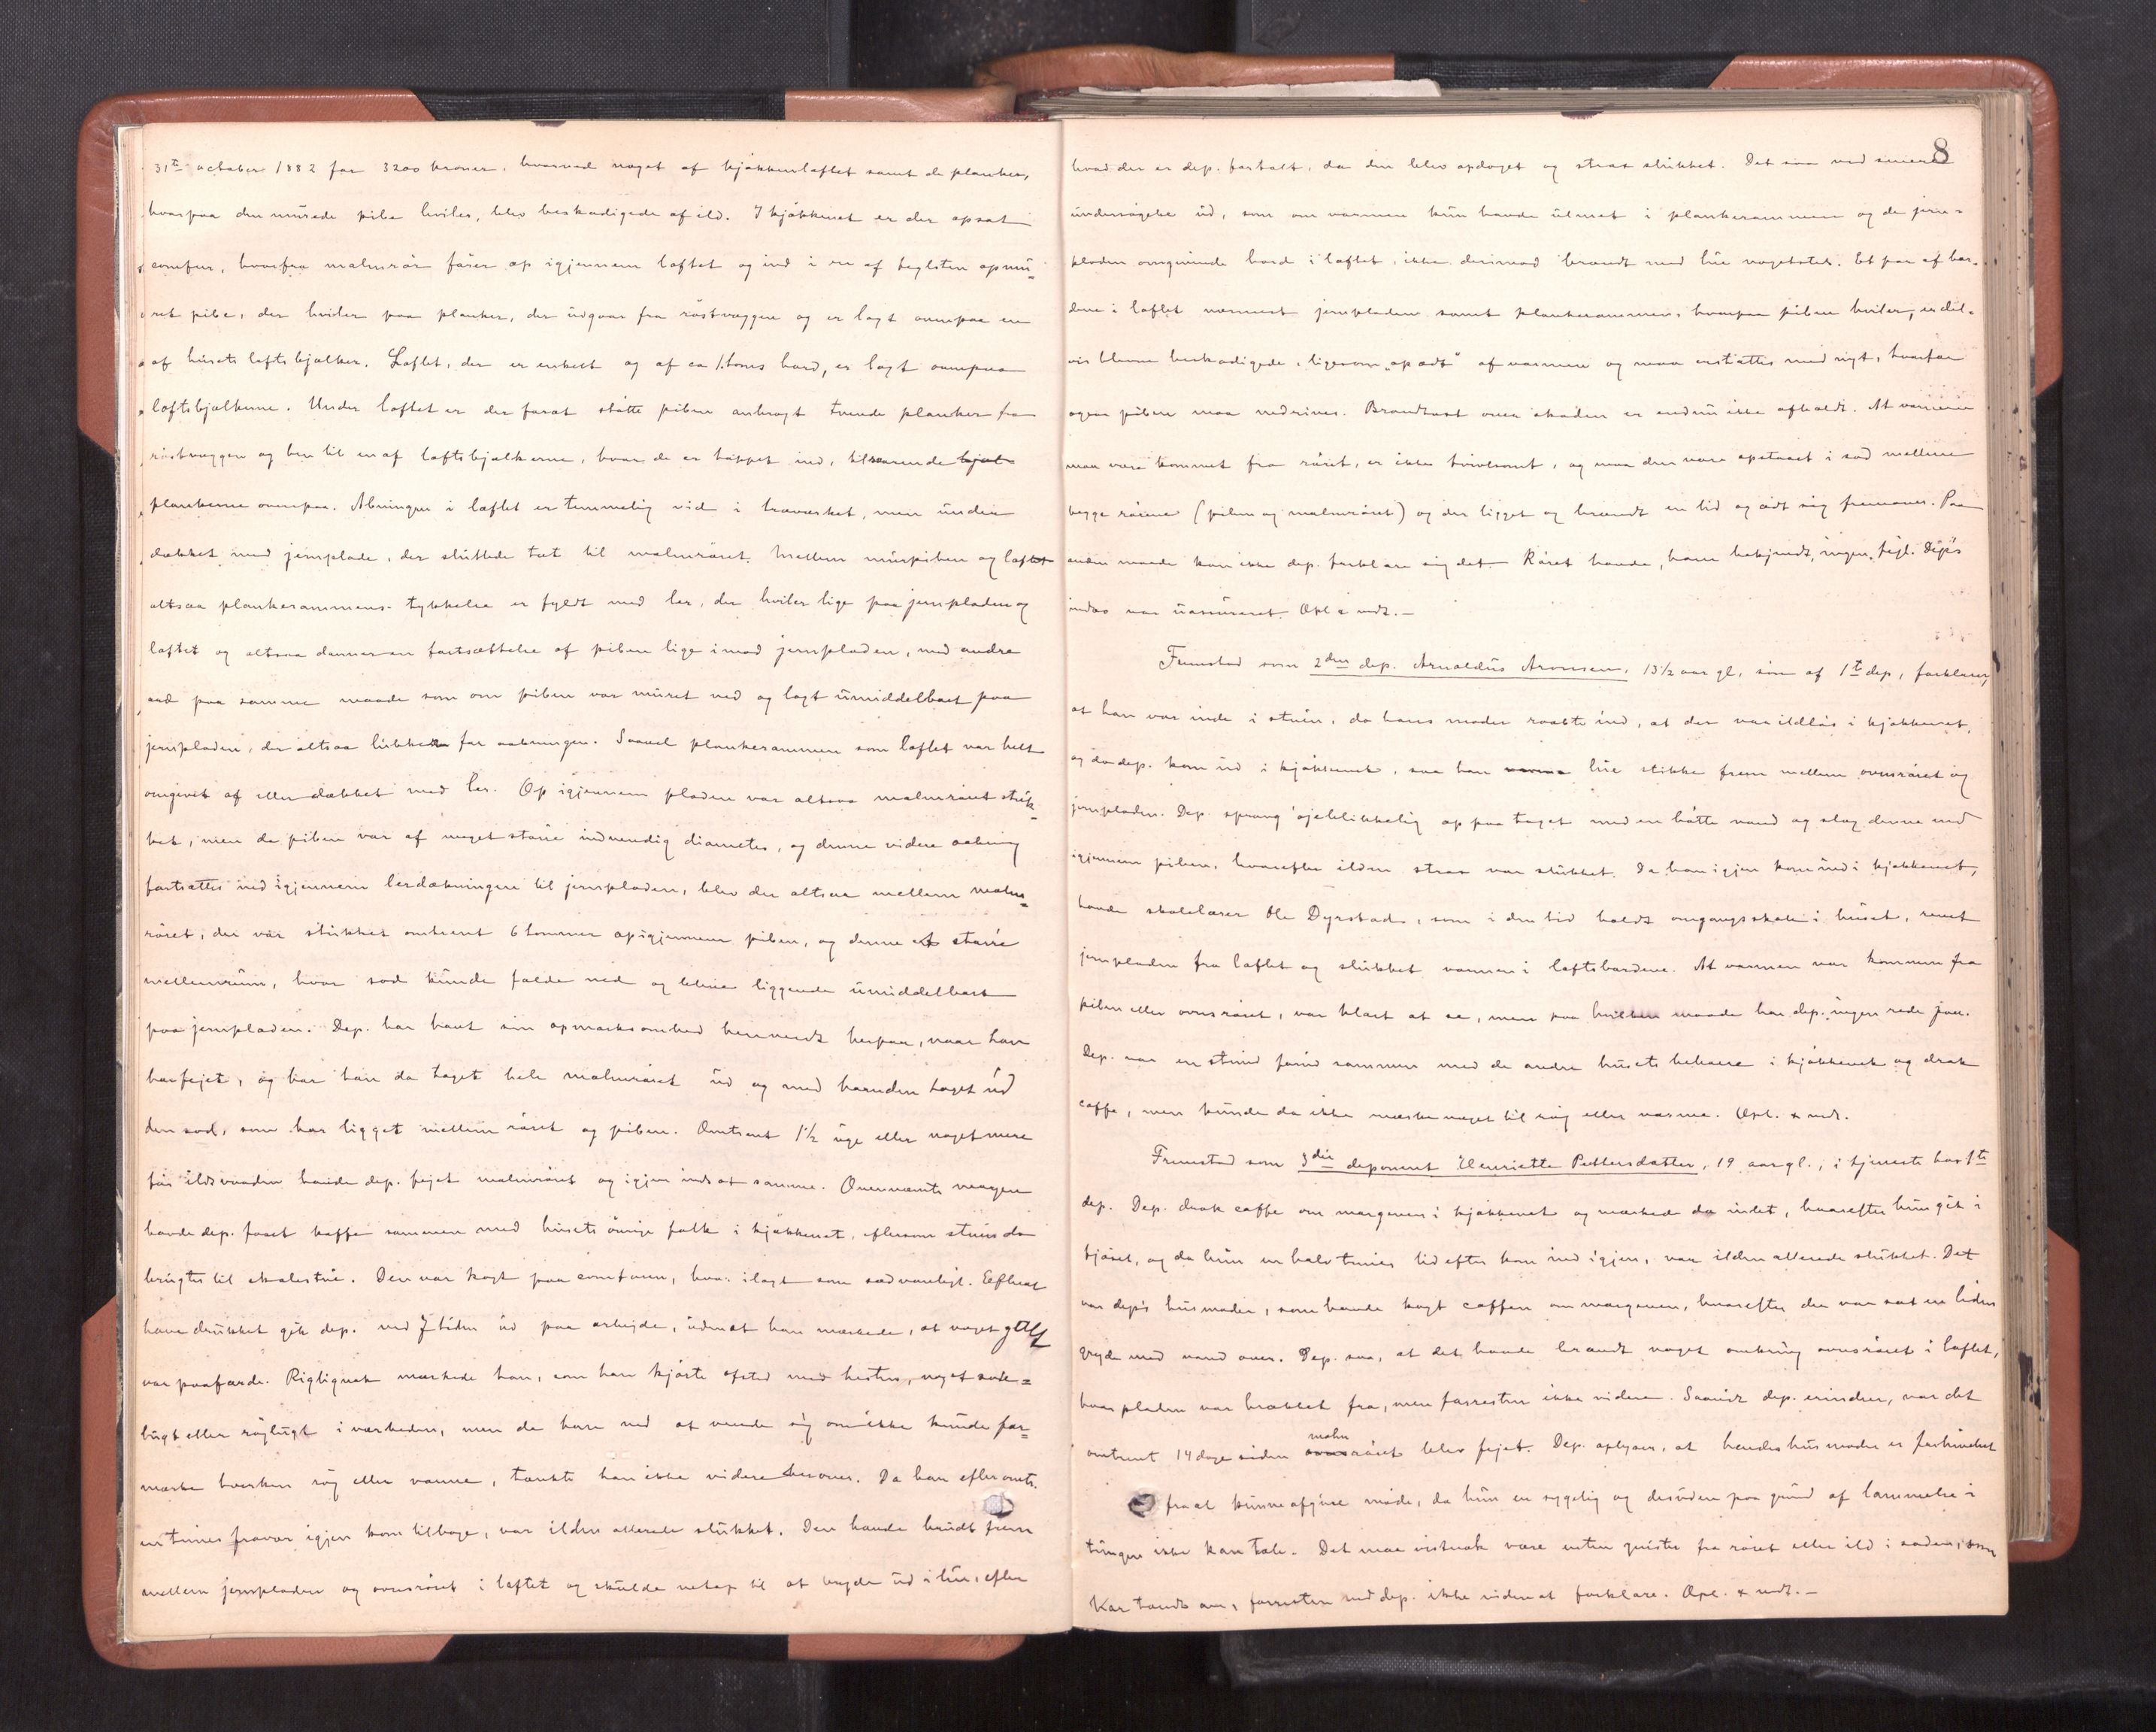 31te october 1882 for 3200 kroner, hvorved noget af kjøkkenloftet samt de planker,
hvorpaa den murede pibe hviler, blev beskadigede af ild. I kjøkkenet er der opsat
comfur, hvorfra malmrør fører op igjennem loftet og ind i en af teglsten opmu-
ret pibe, der hviler paa planker, der udgaar fra røstvæggen og er lagt ovenpaa en
af husets loftsbjælker. Loftet, der er enkelt og af ca 1 toms bord, er lagt ovenpaa
loftsbjælkerne. Under loftet er der forat støtte piben anbragt tvende planker fra
røstvæggen og hen til en af loftsbjælkerne, hvor de er tappet ind, tilsvarende bjæl-
plankerne ovenpaa. Abningen i loftet er temmelig vid i træværket, men under
dækket med jernplade, der sluttede tæt til malmrøret. Mellem murpiben og loftet
altsaa plankerammens tykkelse er fyldt med ler, der hviler lige paa jernpladen og
loftet og altsaa danner en fortsættelse af piben lige imod jernpladen, med andre
ord paa samme maade som om piben var muret ned og lagt umiddelbart paa
jernpladen, der altsaa lukkede for aabningen. Saavel plankerammen som loftet var helt
omgivet af eller dækket med ler. Op igjennem pladen var altsaa malmrøret stuk-
ket, men da piben var af meget større indvendig diameter, og denne videre aabning
fortsattes ned igjennem lerdækningen til jernpladen, blev der altsaa mellem malm-
røret, der var stukket omtrent 6 tommer op igjennem piben, og denne et større
mellemrum, hvor sod kunde falde ned og blive liggende umiddelbart
paa jernpladen. Dep. har havt sin opmærksomhed henvendt herpaa, naar han
har fejet, og har han da taget hele malmrøret ud og med haanden taget ud
den sod, som har ligget mellem røret og piben. Omtrent 1½ uge eller noget mere
før ildsvaaden havde dep. fejet malmrøret og igjen indsat samme. Ovennævnte morgen
havde dep. faaet kaffe sammen med husets øvrige folk i kjøkkenet, eftersom stuen da
brugtes til skolestue. Den var kogt paa comfuren, hvor ilagt som sædvanligt. Efterat
have drukket gik dep. ved 7 tiden ud paa arbejde, uden at han mærkede, at noget galt
var paafærde. Rigtignok mærkede han, som han kjørte afsted med hesten, noget sod-
lugt eller røglugt i værheden, men da han ved at vende sig om ikke kunde for-
mærke hverken røg eller varme, tænkte han ikke videre herover. Da han efter omtr.
en times fravær igjen kom tilbage, var ilden allerede slukket. Den havde brudt frem
mellem jernpladen og ovnsrøret i loftet og skulde netop til at bryde ud i lue, efter
8
hvad der er dep. fortalt, da den blev opdaget og strax slukket. Det saa ved senere
undersøgelse ud, som om varmen kun havde ulmet i plankerammen og de jern-
pladen omgivende bord i loftet, ikke derimod brændt med lue nogetsteds. Et par af bor-
dene i loftet nærmest jernpladen samt plankerammen, hvorpaa piben hviler, er del-
vis blevne beskadigede, ligesom „opædt" af varmen og maa erstattes med nyt, hvorfor
ogsaa piben maa nedrives. Brandtaxt over skaden er endnu ikke afholdt. At varmen
maa være kommet fra røret, er ikke tvivlsomt, og maa den være opstaaet i sod mellem
begge rørene (piben og malmrøret) og der ligget og brændt en tid og ædt sig fremover. Paa
anden maade kan ikke dep. forklare sig det. Røret havde, ham bekjendt, ingen fejl. Dep's
indbo var uassureret. Opl. & vedt. —
Fremstod som 2den dep. Arnoldus Aronsen, 13½ aar gl., søn af 1te dep, forklarer,
at han var inde i stuen, da hans moder raabte ind, at der var ildløs i kjøkkenet,
og da dep. kom ud i kjøkkenet, saa han varme lue stikke frem mellem ovnsrøret og
jernpladen. Dep. sprang øjeblikkelig op paa taget med en bøtte vand og slog denne ned
igjennem piben, hvorefter ilden strax var slukket. Da han igjen kom ind i kjøkkenet,
havde skolelærer Ole Dyrstad, som i den tid holdt omgangsskole i huset, revet
jernpladen fra loftet og slukket varmen i loftsbordene. At varmen var kommen fra
piben eller ovnsrøret, var klart at se, men paa hvilken maade har dep. ingen rede paa.
Dep. var en stund forud sammen med de andre husets beboere i kjøkkenet og drak
caffe, men kunde da ikke mærke noget til røg eller varme. Opl. & vedt.
Fremstod som 3die deponent Henriette Pettersdatter, 19 aar gl., i tjeneste hos 1te
dep. Dep. drak caffe om morgenen i kjøkkenet og mærkede da intet, hvorefter hun gik i
fjøset, og da hun en halv times tid efter kom ind igjen, var ilden allerede slukket. Det
var dep's husmoder, som havde kogt caffen om morgenen, hvorefter der var sat en liden
gryde med vand over. Dep. saa, at det havde brændt noget omkring ovnsrøret i loftet,
hvor pladen var brækket fra, men forresten ikke videre. Saavidt dep. erindrer, var det
malm
omtrent 14 dage siden ovnsrøret blev fejet. Dep. oplyser, at hendes husmoder er forhindret
fra at kunne afgive møde, da hun er sygelig og desuden paa grund af lammelse i
tungen ikke kan tale. Det maa vistnok være enten gnister fra røret eller ild i soden, som
har tændt an, forresten ved dep. ikke videre at forklare. Opl. & vedt. —